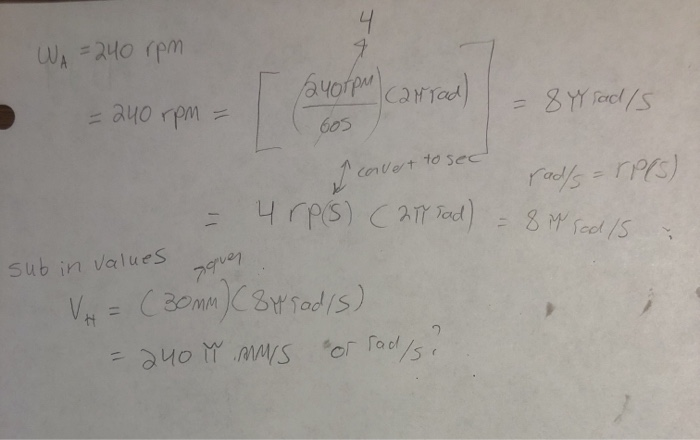 4
ω_A = 240 rpm
= 240 rpm = [(240rpm/60s)(2π rad)] = 8π rad/s
convert to sec
rad/s = rp(s)
= 4 rp(s) (2π rad) = 8π rad/s
sub in values
given
V_H = (30mm)(8π rad/s)
= 240 π mm/s or rad/s?